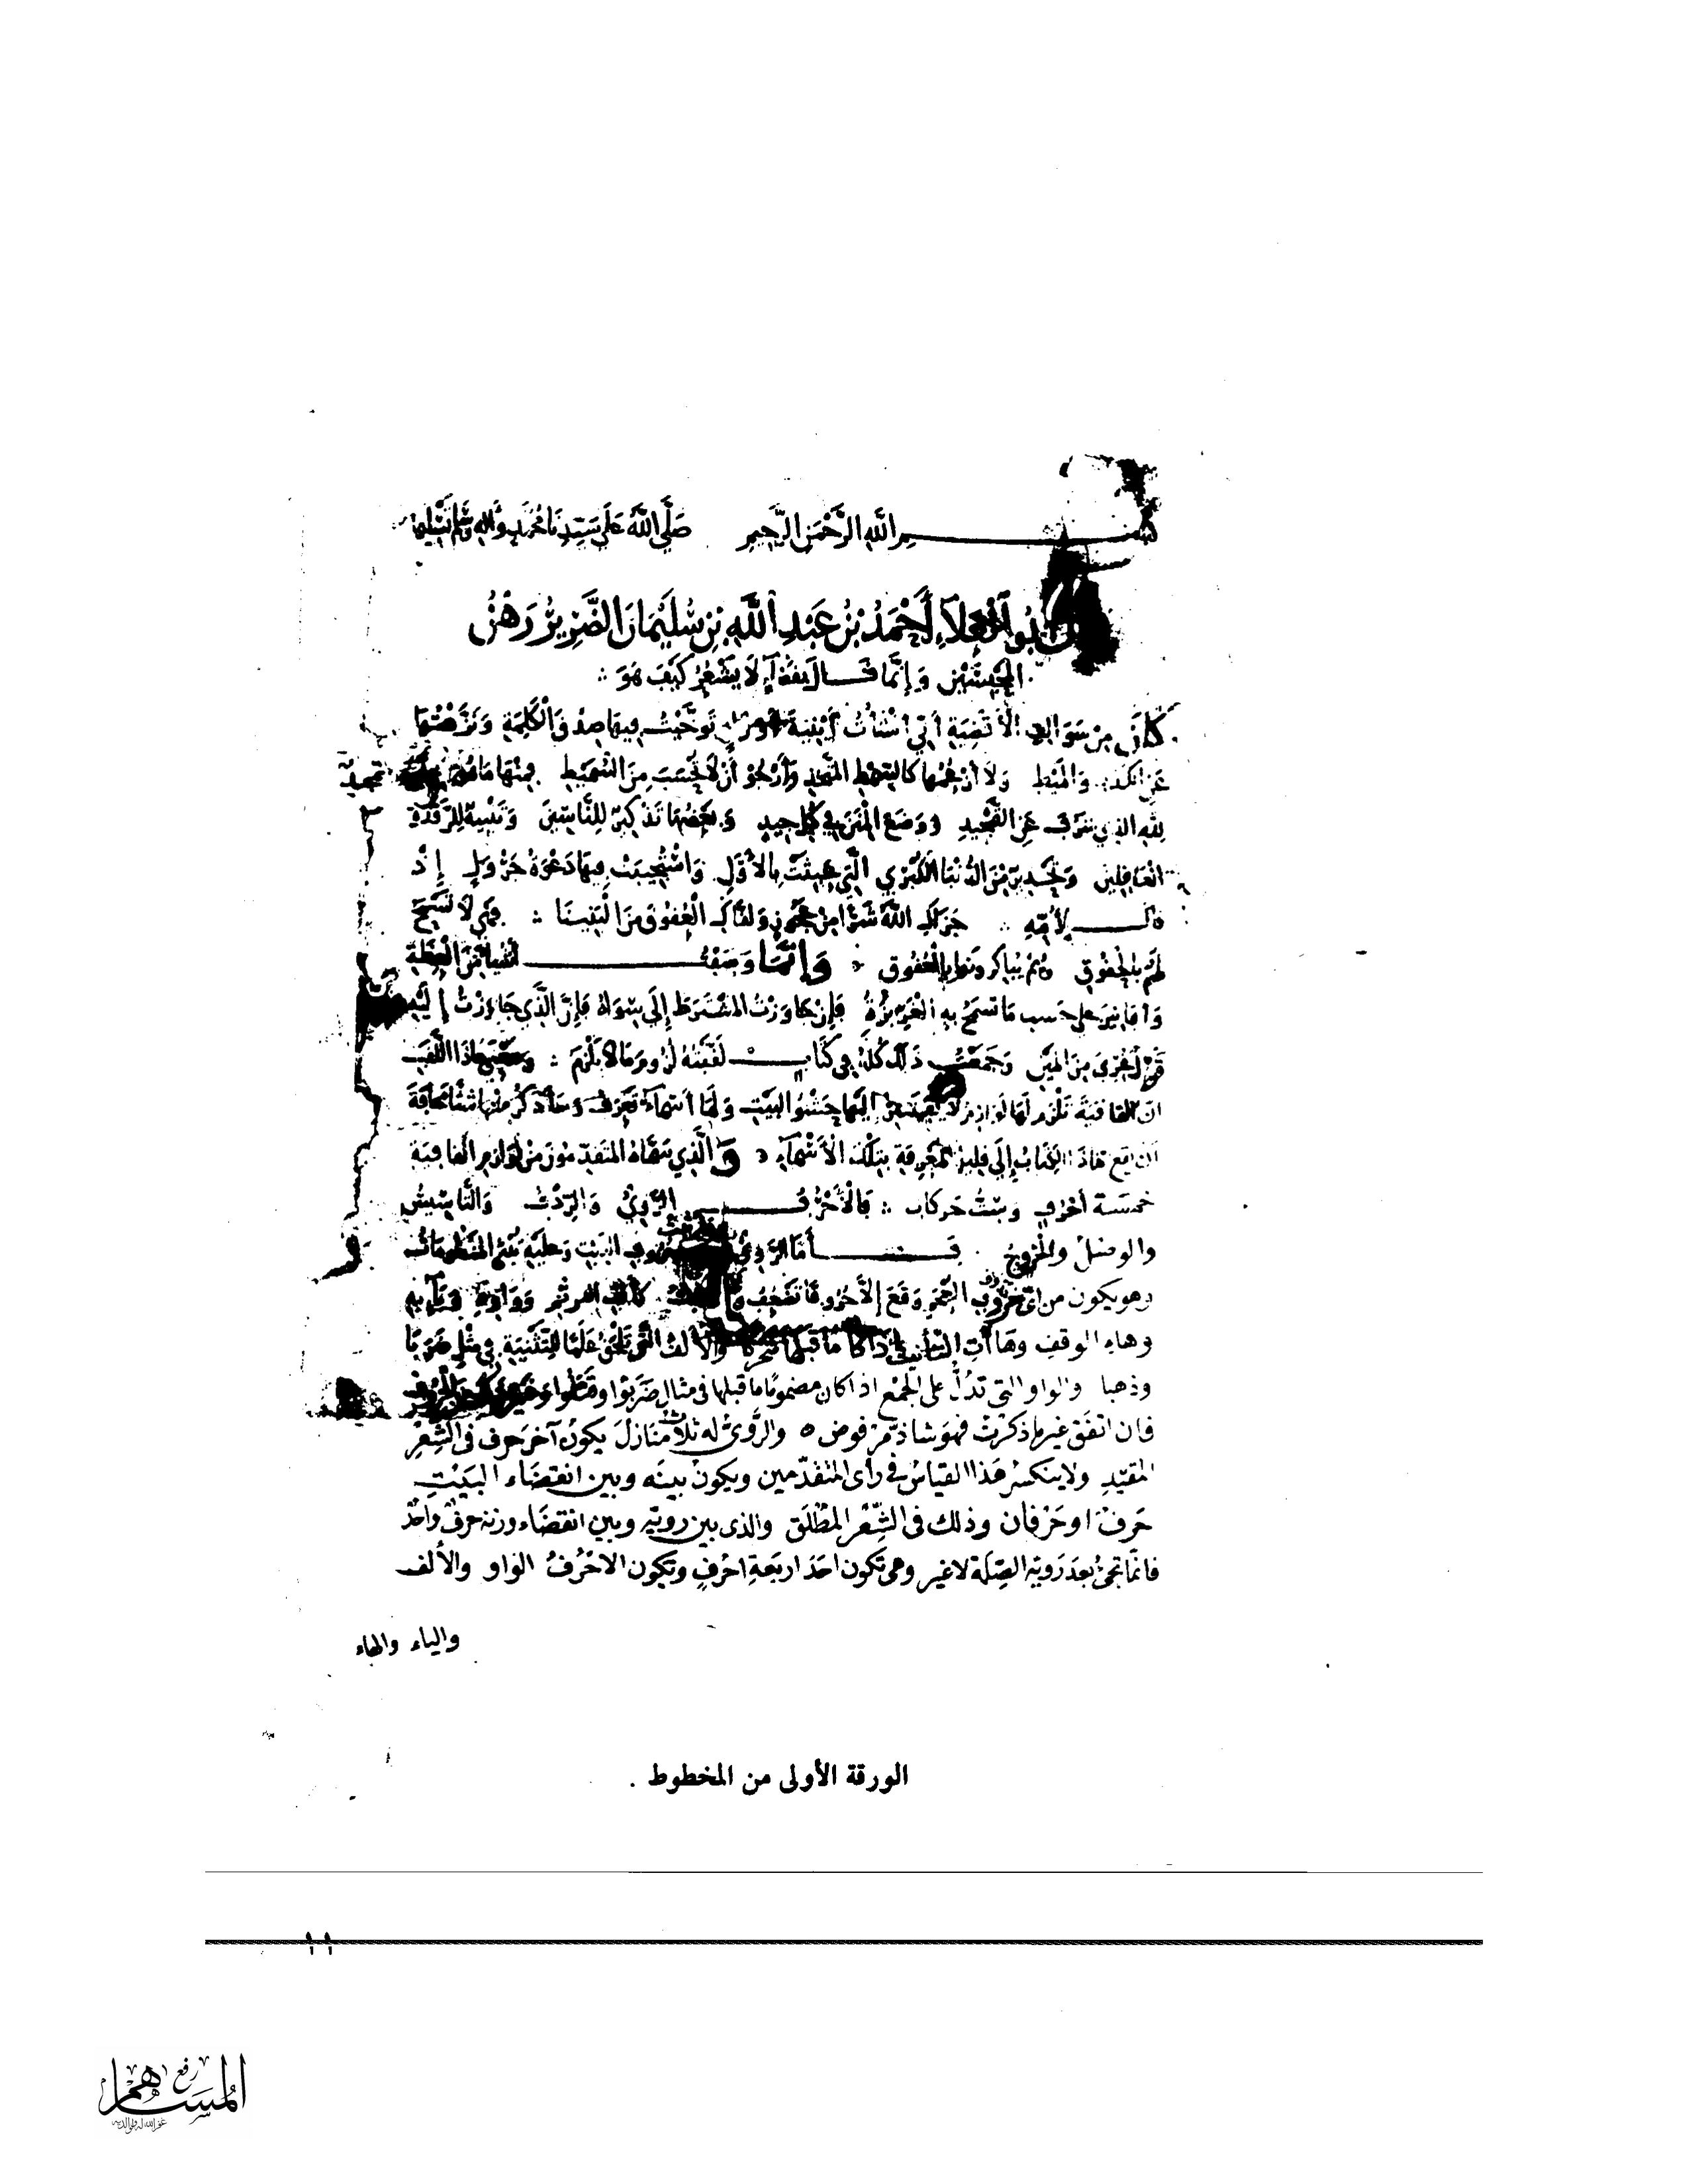 بسم الله الرحمن الرحيم صلى الله على سيدنا محمد وآله وسلم تسليما
أبو العلاء أحمد بن عبد الله بن سليمان الضرير رهن
المحبسين وإنما قال
كان من سوالف الأقضية أني أنشأت أبنية توخيت فيها صدق الكلمة ونزهتها
عن الكذب والميط ولا أزعمها كالسمط المتخذ وأرجو أن لا تحسب من السميط فمنها ما تمجيد
لله الذي شرف عن التمجيد ووضع المنن في كل جيد وبعضها تذكير للناسين وتنبيه للرقدة
الغافلين وتحذير من الدنيا الكبرى التي عبثت بالأول واستجيبت فيها دعوة جرول إذ
قال لأمه جزاك الله شرا من عجوز ولقاك العقوق من البنينا فهي لا تسمح
لهم بالحقوق وهم يباكرونها بالعقوق وإنما وصفت أشياء من العظة
وأفانين على حسب ما تسمح به الغريزة فإن جاوزت المشترط إلى سواه فإن الذي جاوزت إليه
قول عري من المين وجمعت ذلك كله في كتاب لقبته لزوم ما لا يلزم ومعنى هذا اللقب
أن القافية تلزم لها لوازم لا يفتقر إليها حشو البيت ولها أسماء تعرف وسأذكر منها شيئا مخافة
أن يقع هذا الكتاب إلى قليل المعرفة بتلك الأسماء والذي سماه المتقدمون من لوازم القافية
خمسة أحرف وست حركات فالأحرف الروي والردف والتأسيس
والوصل والخروج فأما الروي البيت وعليه تبنى المنظومات
وهو يكون من أي حروف المعجم وقع إلا أحرفا تضعف كألف الترنم وواوه ويائه
وهاء الوقف وهاءات التأنيث إذا كان ما قبلها متحركا والألف التي تلحق علما للتثنية في مثل ضربا
وذهبا والواو التي تدل على الجمع إذا كان مضموما ما قبلها في مثال ضربوا
فان اتفق غير ما ذكرت فهو شاذ مرفوض والروي له ثلاث منازل يكون آخر حرف في الشعر
المقيد ولا ينكسر هذا القياس في رأي المتقدمين ويكون بينه وبين انقضاء البيت
حرف او حرفان وذلك في الشعر المطلق والذي بين رويه وبين انقضاء وزنه حرف واحد
فانما تجئ بعد رويه الصلة لا غير وهي تكون احد اربعة احرف وتكون الاحرف الواو والألف
والياء والهاء
الورقة الأولى من المخطوط .
١١
رفع
المساهم
غفر الله له ولوالديه